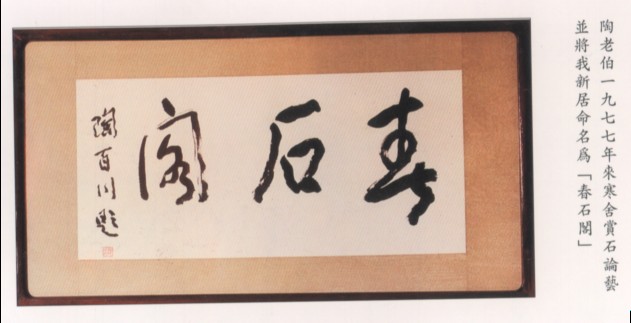 陶老伯一九七七年來寒舍賞石論藝
並將我新居命名爲「春石閣」
春石閣
陶百川題